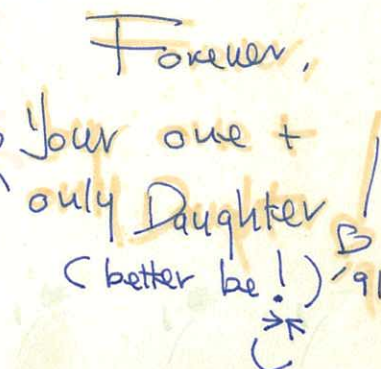 Forever,
Your one +
only Daughter
(better be!)
B
'91